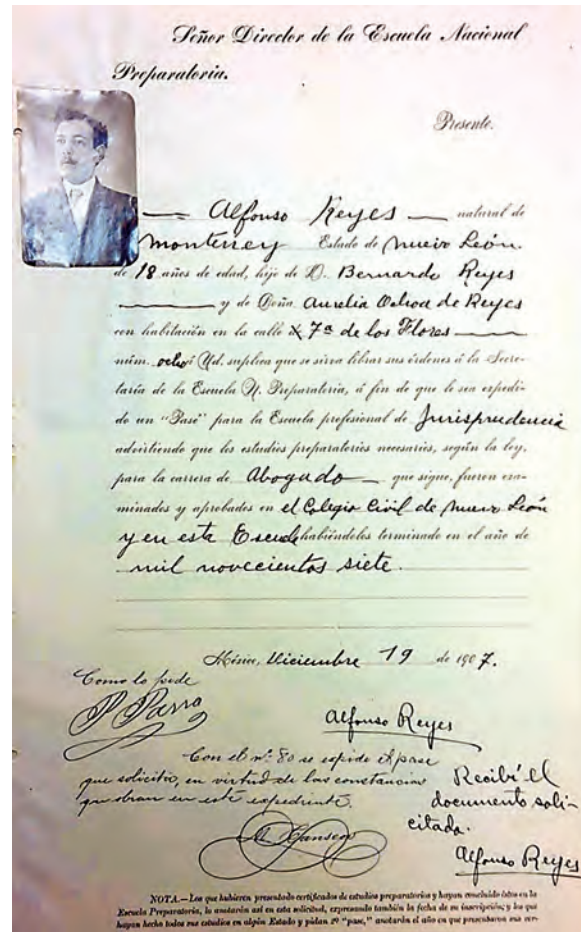 Señor Director de la Escuela Nacional
Preparatoria.
Presente.
Alfonso Reyes natural de
Monterrey Estado de Nuevo León.
de 18 años de edad, hijo de D. Bernardo Reyes
y de Doña Aurelia Ochoa de Reyes
con habitación en la calle 7ª de los Flores
núm. ocho á Ud. suplica que se sirva librar sus órdenes á la Secre-
taría de la Escuela N. Preparatoria, á fin de que le sea expedi-
do un "Pase" para la Escuela profesional de Jurisprudencia
advirtiendo que los estudios preparatorios necesarios, según la ley,
para la carrera de Abogado que sigue, fueron exa-
minados y aprobados en el Colegio Civil de Nuevo León
y en esta Escuela habiéndolos terminado en el año de
mil novecientos siete.
México, Diciembre 19 de 1907.
Como lo pide
P. Parra
Alfonso Reyes
Con el nº 80 se expide el pase
que solicita, en virtud de las constancias
que obran en este expediente.
Recibí el
documento soli-
citado.
Alfonso Reyes
NOTA.—Los que hubieren presentado certificados de estudios preparatorios y hayan concluido éstos en la
Escuela Preparatoria, lo anotarán así en esta solicitud, expresando también la fecha de su inscripción; y los que
hayan hecho todos sus estudios en algún Estado y pidan "pase," anotarán el año en que presentaron sus cer-